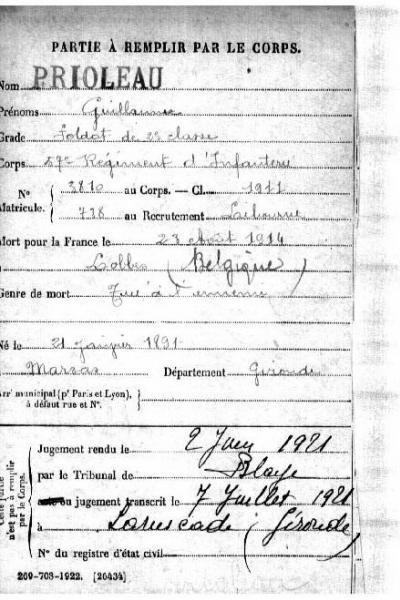 PARTIE À REMPLIR PAR LE CORPS.
Nom PRIOLEAU
Prénoms Guillaume
Grade Soldat de 2e classe
Corps 57e Régiment d'Infanterie
N° 3810 au Corps. — Cl. 1911
Matricule. 718 au Recrutement Libourne
Mort pour la France le 23 Août 1914
à Lobbes (Belgique)
Genre de mort Tué à l'ennemi
Né le 21 Janvier 1891
à Marsas Département Gironde
Arrt municipal (pr Paris et Lyon),
à défaut rue et N°.
Cette partie n'est pas à remplir par le Corps.
Jugement rendu le 2 Juin 1921
par le Tribunal de Blaye
ou jugement transcrit le 7 Juillet 1921
à Laruscade (Gironde)
N° du registre d'état civil
269-708-1922. [26434]